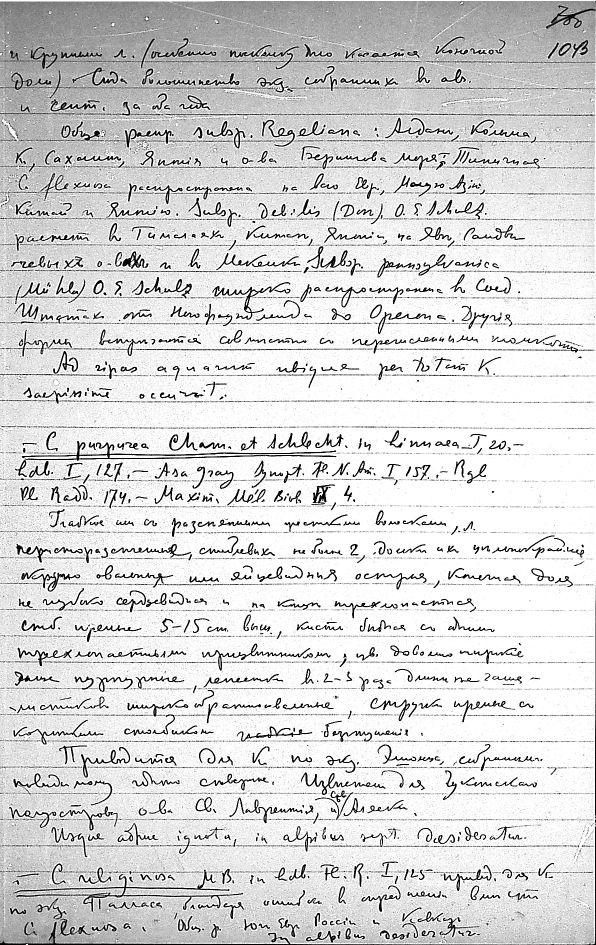 1043
и крупным л. (особенно поскольку это касается конечной
доли). Сюда большинство экз. собранных в авг.
и сент. за оба года
Общ. распр. subsp. Regeliana: Аldан, Колыма,
К., Сахалин, Япония и о-ва Берингова моря. Типичная
C. flexuosa распространена на всю Евр., Малую Азію,
Китай и Японію. Subsp. debilis (Don) O. E. Schulz.
растет в Гималаях, Китае, Японіи, на Яве, Сандви-
чевых о-вах и в Мексике, Subsp. pennsylvanica
(Mühl.) O. E. Schulz широко распространена в Соед.
Штатах от Ньюфаундленда до Орегона. Другія
формы встречаются совместно с перечисленными
Ad ripas aquarum ubique per totam K.
saepissime occurrit.
— C. purpurea Cham. et Schlecht. in Linnaea I, 20.—
Ldb. I, 127.— Asa Gray Synopt. Fl. N. Am. I, 157.— Rgl
Pl. Radd. 174.— Maxim. Mél. Biol. IX, 4.
Гладкое или с разсеянными жесткими волосками, л.
перисторазсеченные, стеблевых не более 2, дольки их цельнокрайніе,
округло овальныя или яйцевидныя острыя, конечная доля
не глубоко сердцевидная и на конце трехлопастная,
стеб. прямые 5-15 cm выш., кисти бедная с одним
трехлопастным прицветником, цв. довольно широкіе
пурпурные, лепестки в 2-3 раза длиннее чаше-
листиков широкообратноовальные, стручки прямые с
коротким столбиком гладкіе
Приводится для К по экз. Эшшольца, собранным,
повидимому где то севернее. Известен для Чукотскаго
полуострова, о-ва Св. Лаврентія, и Аляски.
Usque adhuc ignota, in alpibus sept. desideratur.
— C. uliginosa M.B. in Ldb. Fl. R. I, 125 привод. для К
по экз. Палласа благодаря ошибке в определеніи вместо
C. flexuosa. Общ. р. Юг Евр. Россіи и Кавказ.
in alpibus desideratur.